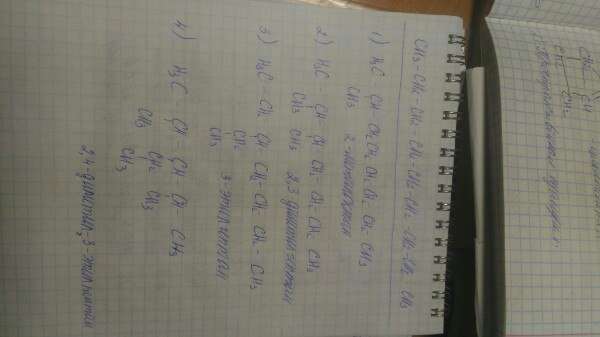 CH3-CH2-CH2-CH2-CH2-CH2-CH2-CH2 CH3
1) H3C CH CH2 CH2 CH2 CH2 CH2 CH3
CH3 2-метилоктан
2) H3C - CH - CH - CH2 CH2 CH2 CH3
CH3 CH3 2,3 диметилгептан
3) H3C - CH2 CH CH2 - CH2 - CH2 - CH3
CH2
CH3 3 этилгептан
4) H3C - CH - CH - CH - CH3
CH3 CH2 CH3
CH3
2,4-диметил,3-этилпентан
CH2
CH2
CH
CH2